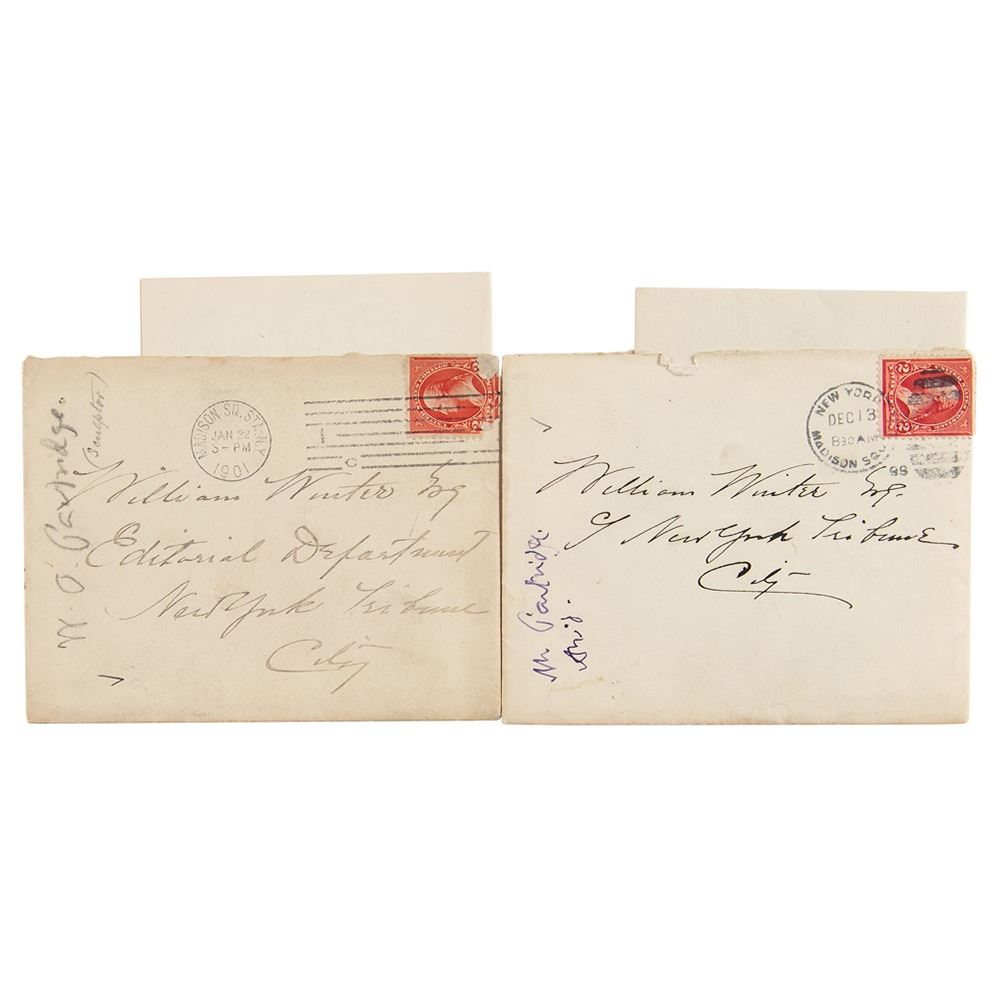 W. O. Partridge.
(Sculptor)
MADISON SQ. STA. N.Y.
JAN 22
3 - PM
1901
William Winter Esq
Editorial Department
New York Tribune
City
NEW YORK
DEC 13
830 AM
MADISON SQ
99
William Winter Esq.
New York Tribune
City
Partridge.